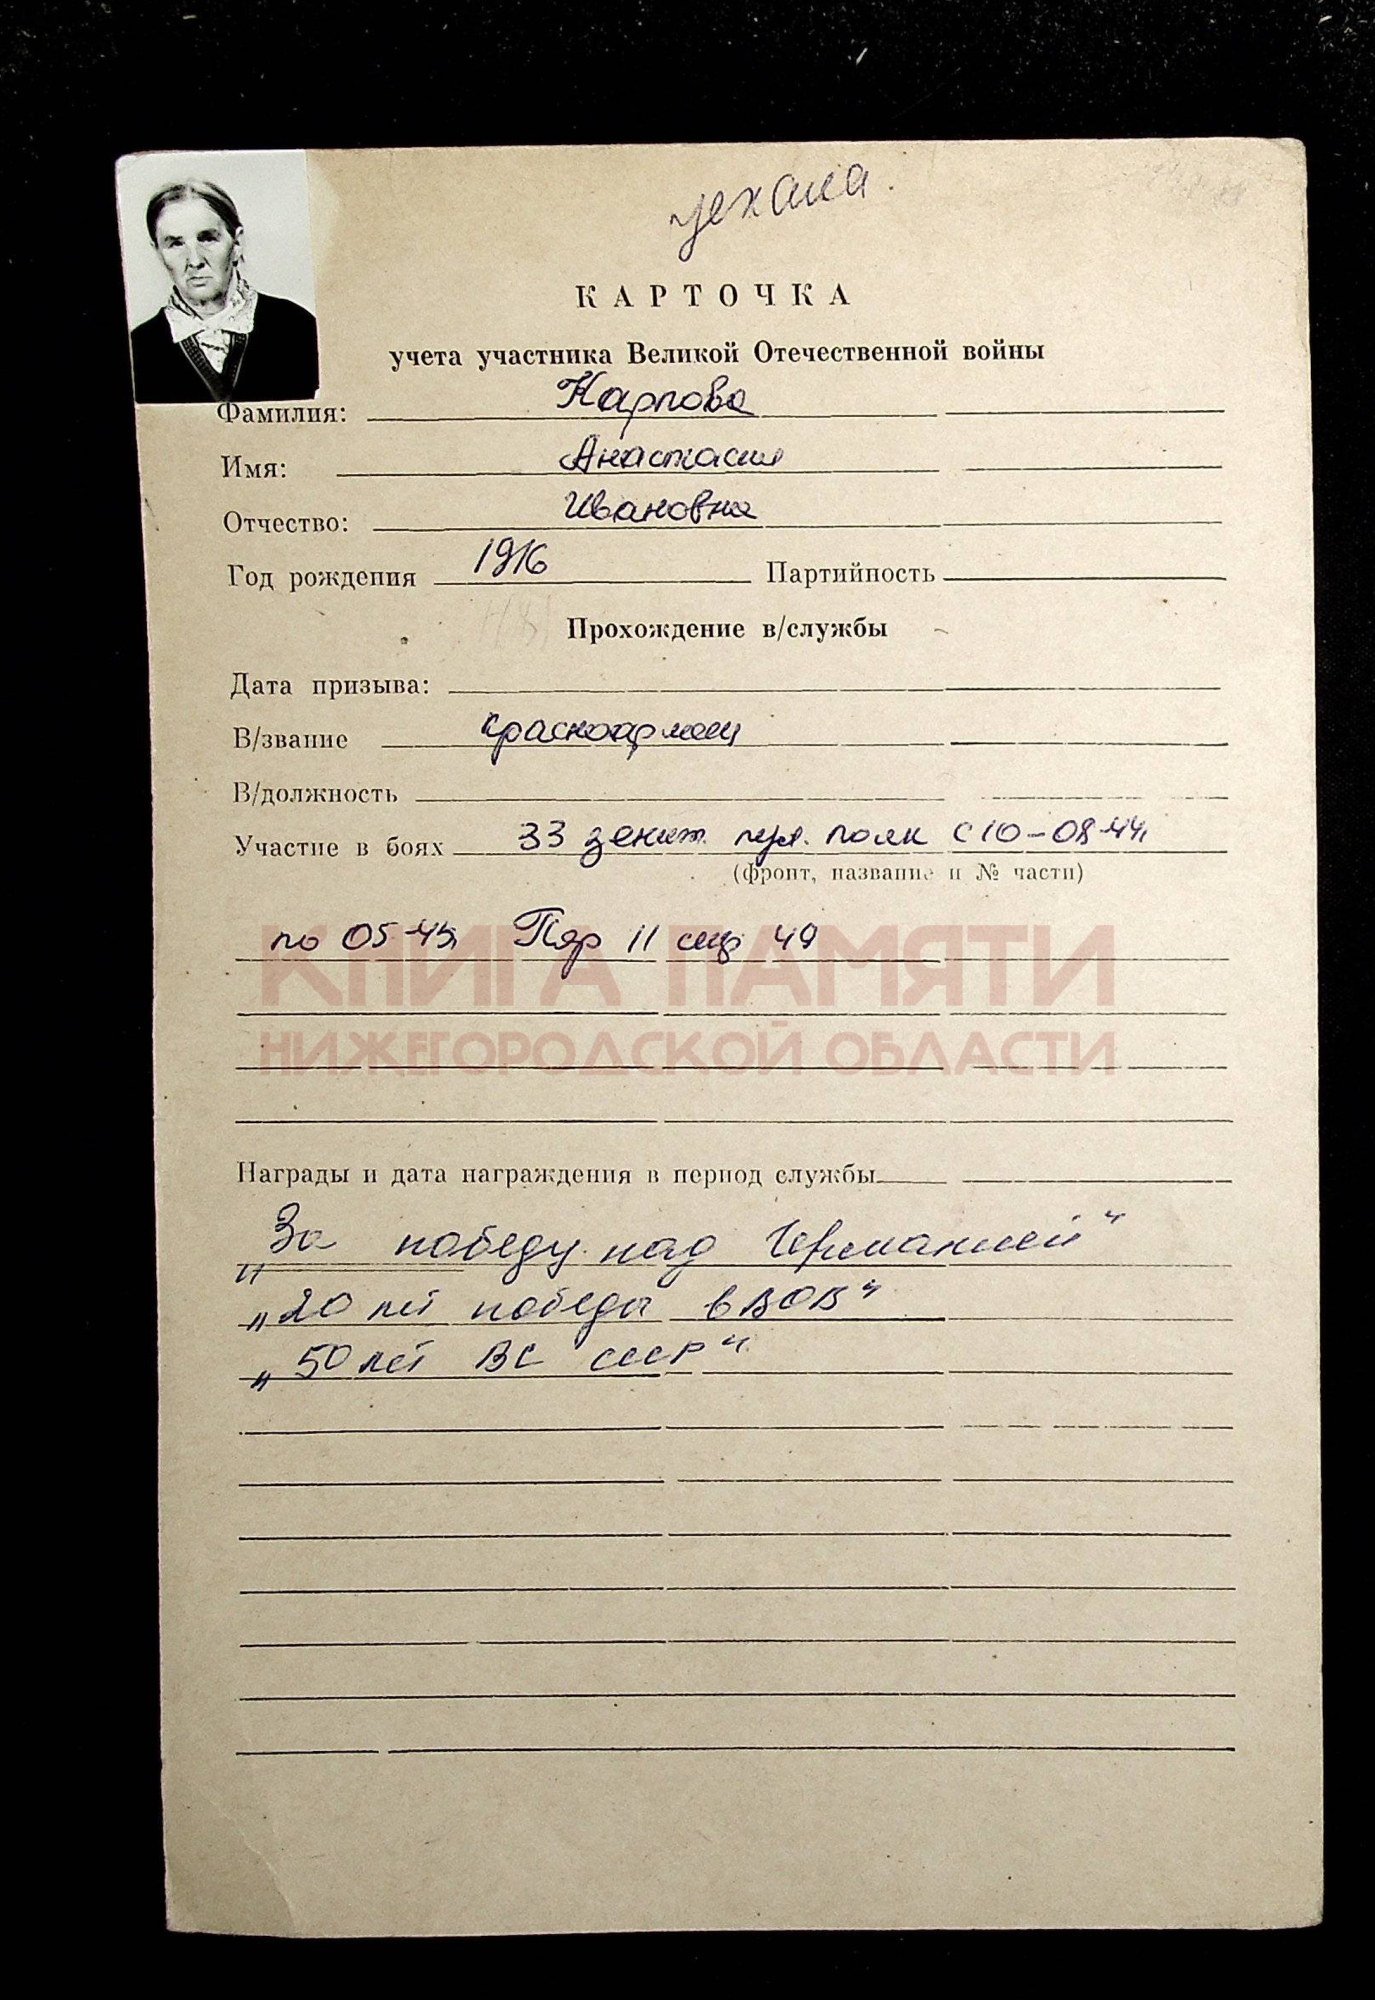 уехала.
КАРТОЧКА
учета участника Великой Отечественной войны
Фамилия: Карпова
Имя: Анастасия
Отчество: Ивановна
Год рождения 1916 Партийность
Прохождение в/службы
Дата призыва:
В/звание красноармеец
В/должность
Участие в боях 33 зенит. пул. полк с 10-08-44
(фронт, название и № части)
по 05-45 11 49
КНИГА ПАМЯТИ
НИЖЕГОРОДСКОЙ ОБЛАСТИ
Награды и дата награждения в период службы
„За победу над Германией“
„20 лет победы в ВОВ“
„50 лет ВС СССР“